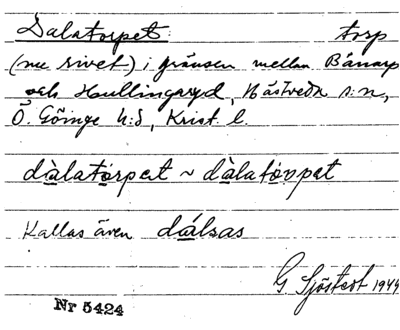 Dalatorpet torp
(nu rivet) i gränsen mellan Bånarp
och Haullingaryd, Hästveda s:n,
Ö. Göinge h:d, Krist. l.
dàlatórpet ~ dàlatórpat
Kallas även dálsas
G. Sjöstedt 1944
Nr 5424